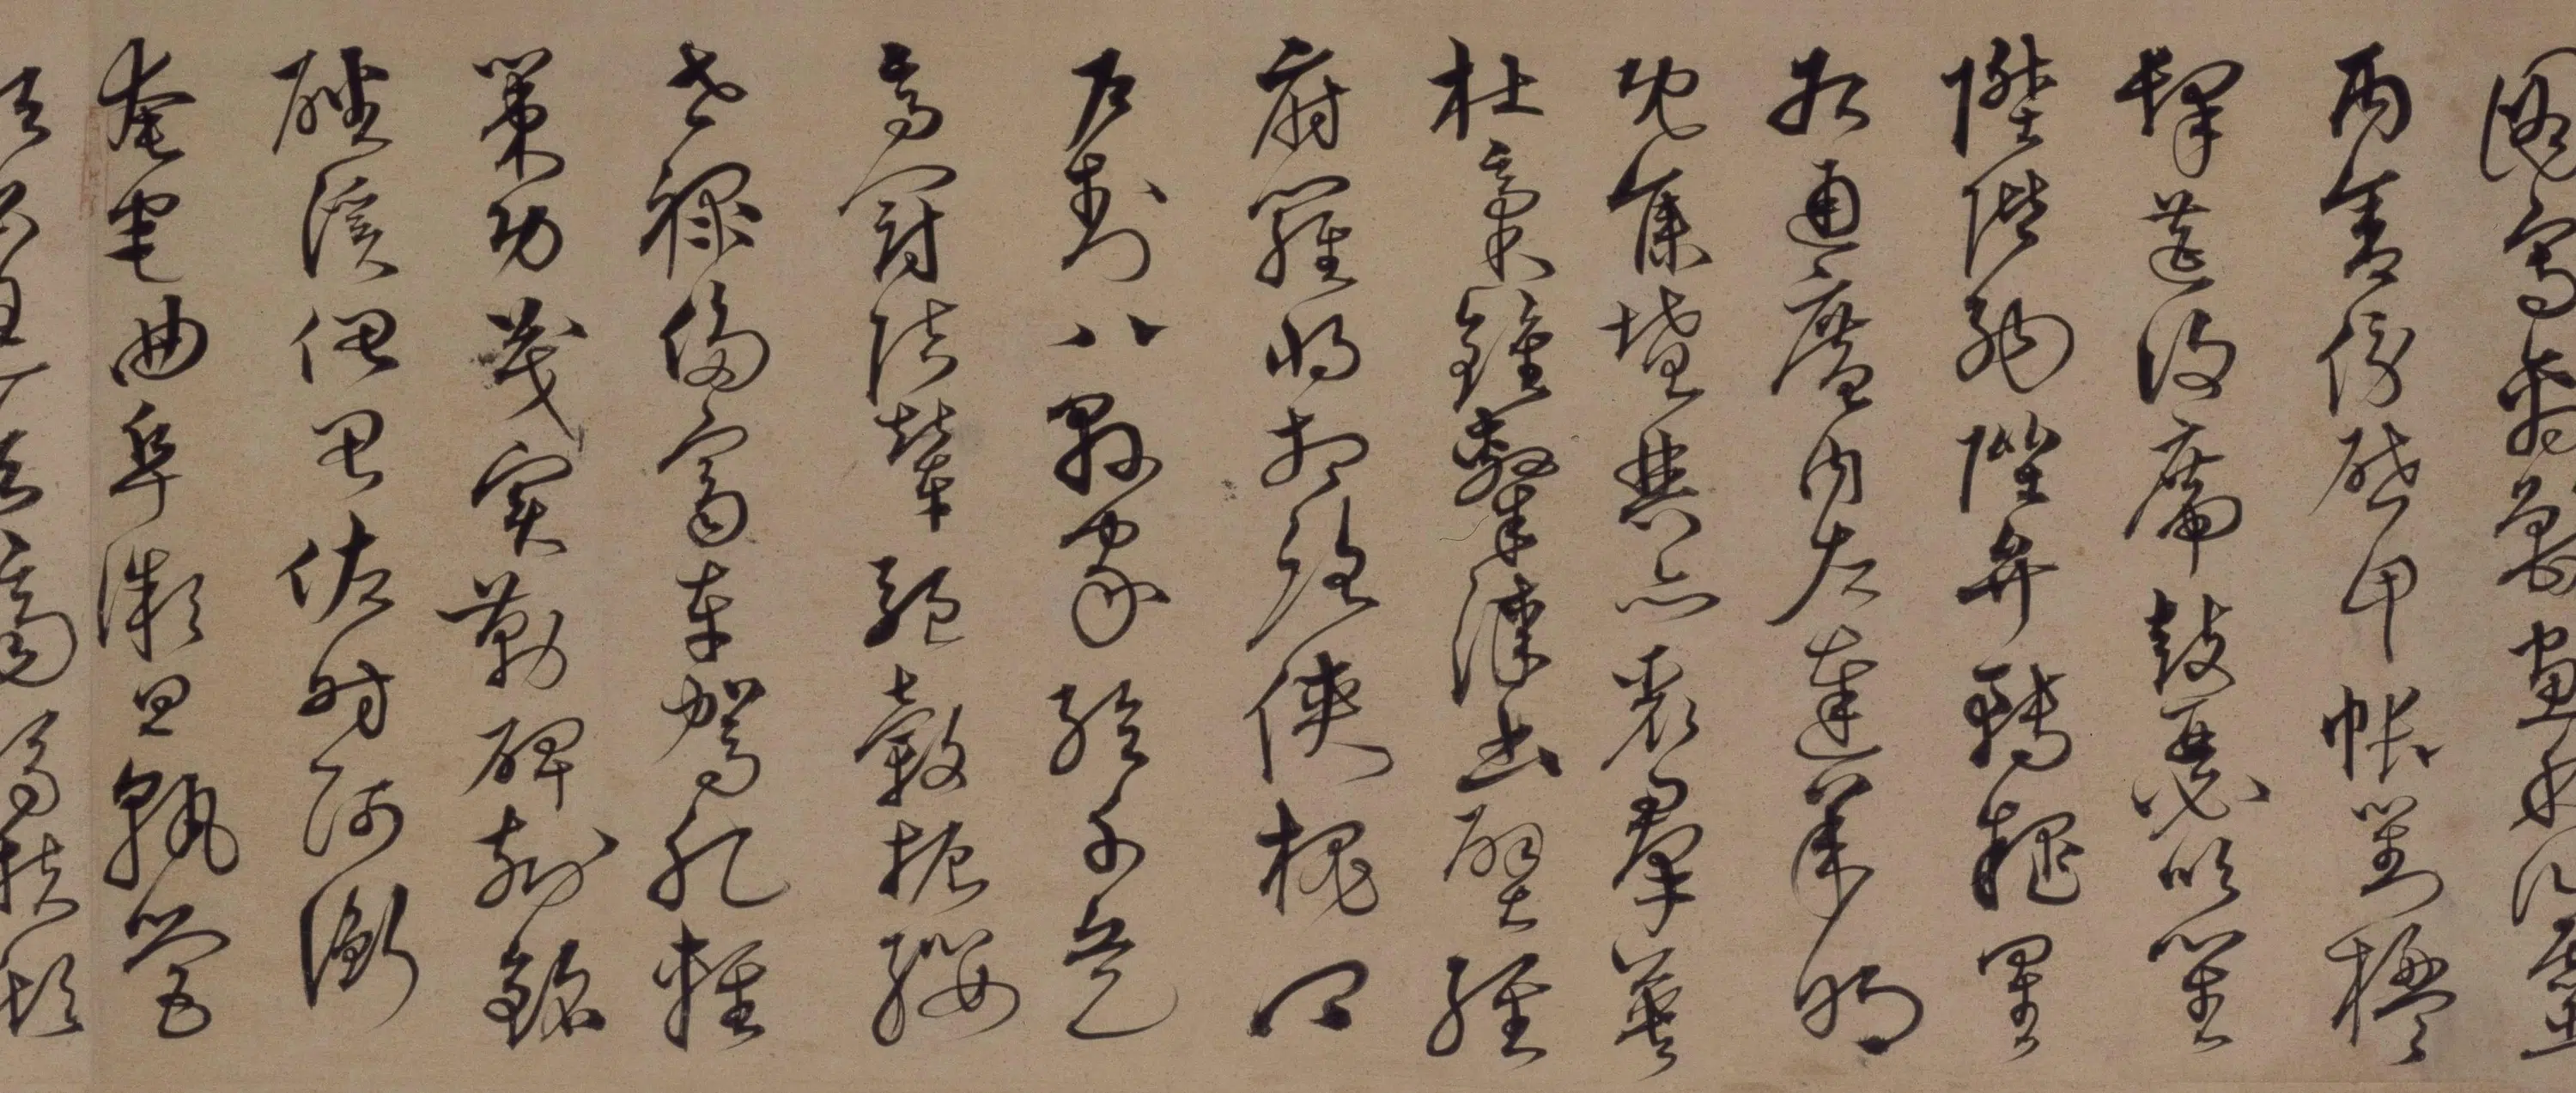 圖寫禽獸畫彩仙靈
丙舍傍啟甲帳對楹
肆筵設席鼓瑟吹笙
陞階納陛弁轉疑星
右通廣內左達承明
既集墳典亦聚羣英
杜稾鍾隸漆書壁經
府羅將相路俠槐卿
戶封八縣家給千兵
高冠陪輦驅轂振纓
世祿侈富車駕肥輕
策功茂實勒碑刻銘
磻溪伊尹佐時阿衡
奄宅曲阜微旦孰營
桓公匡合濟弱扶傾